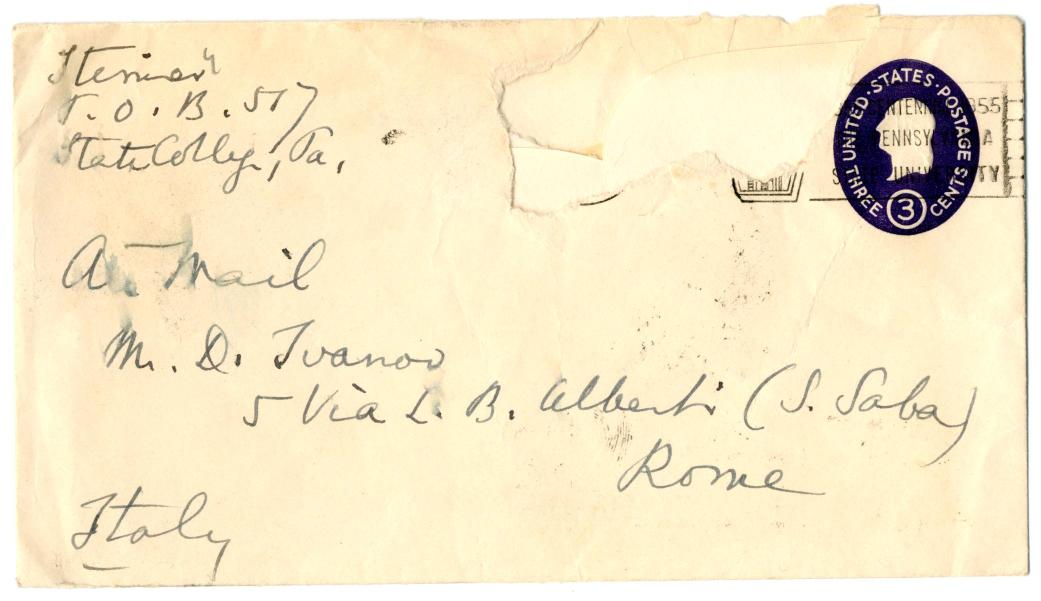 P. O. B. 517
State College, Pa.
Air Mail
Mr. D. Ivanov
5 Via L. B. Alberti (S. Saba)
Rome
Italy
UNITED · STATES · POSTAGE
THREE 3 CENTS
CENTENN 1955
PENNSYLV A
UNIVERSITY